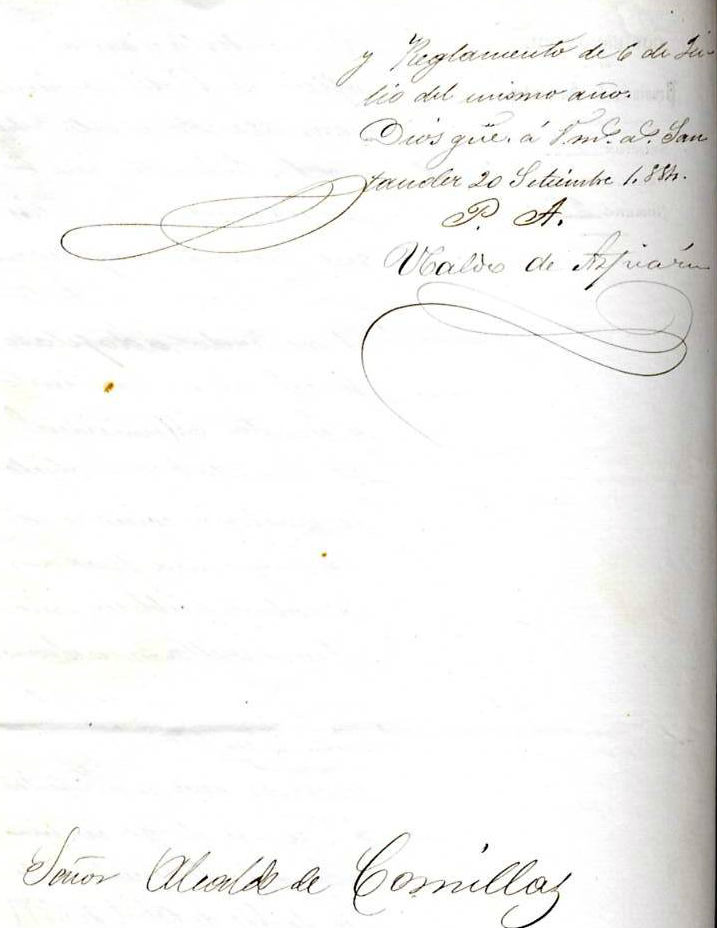 y Reglamento de 6 de Ju-
lio del mismo año.
Dios gūe. á V. m.s a.s San
tander 20 Setiembre 1.884.
P. A.
Ubaldo de Azpiazu
Señor Alcalde de Comillas